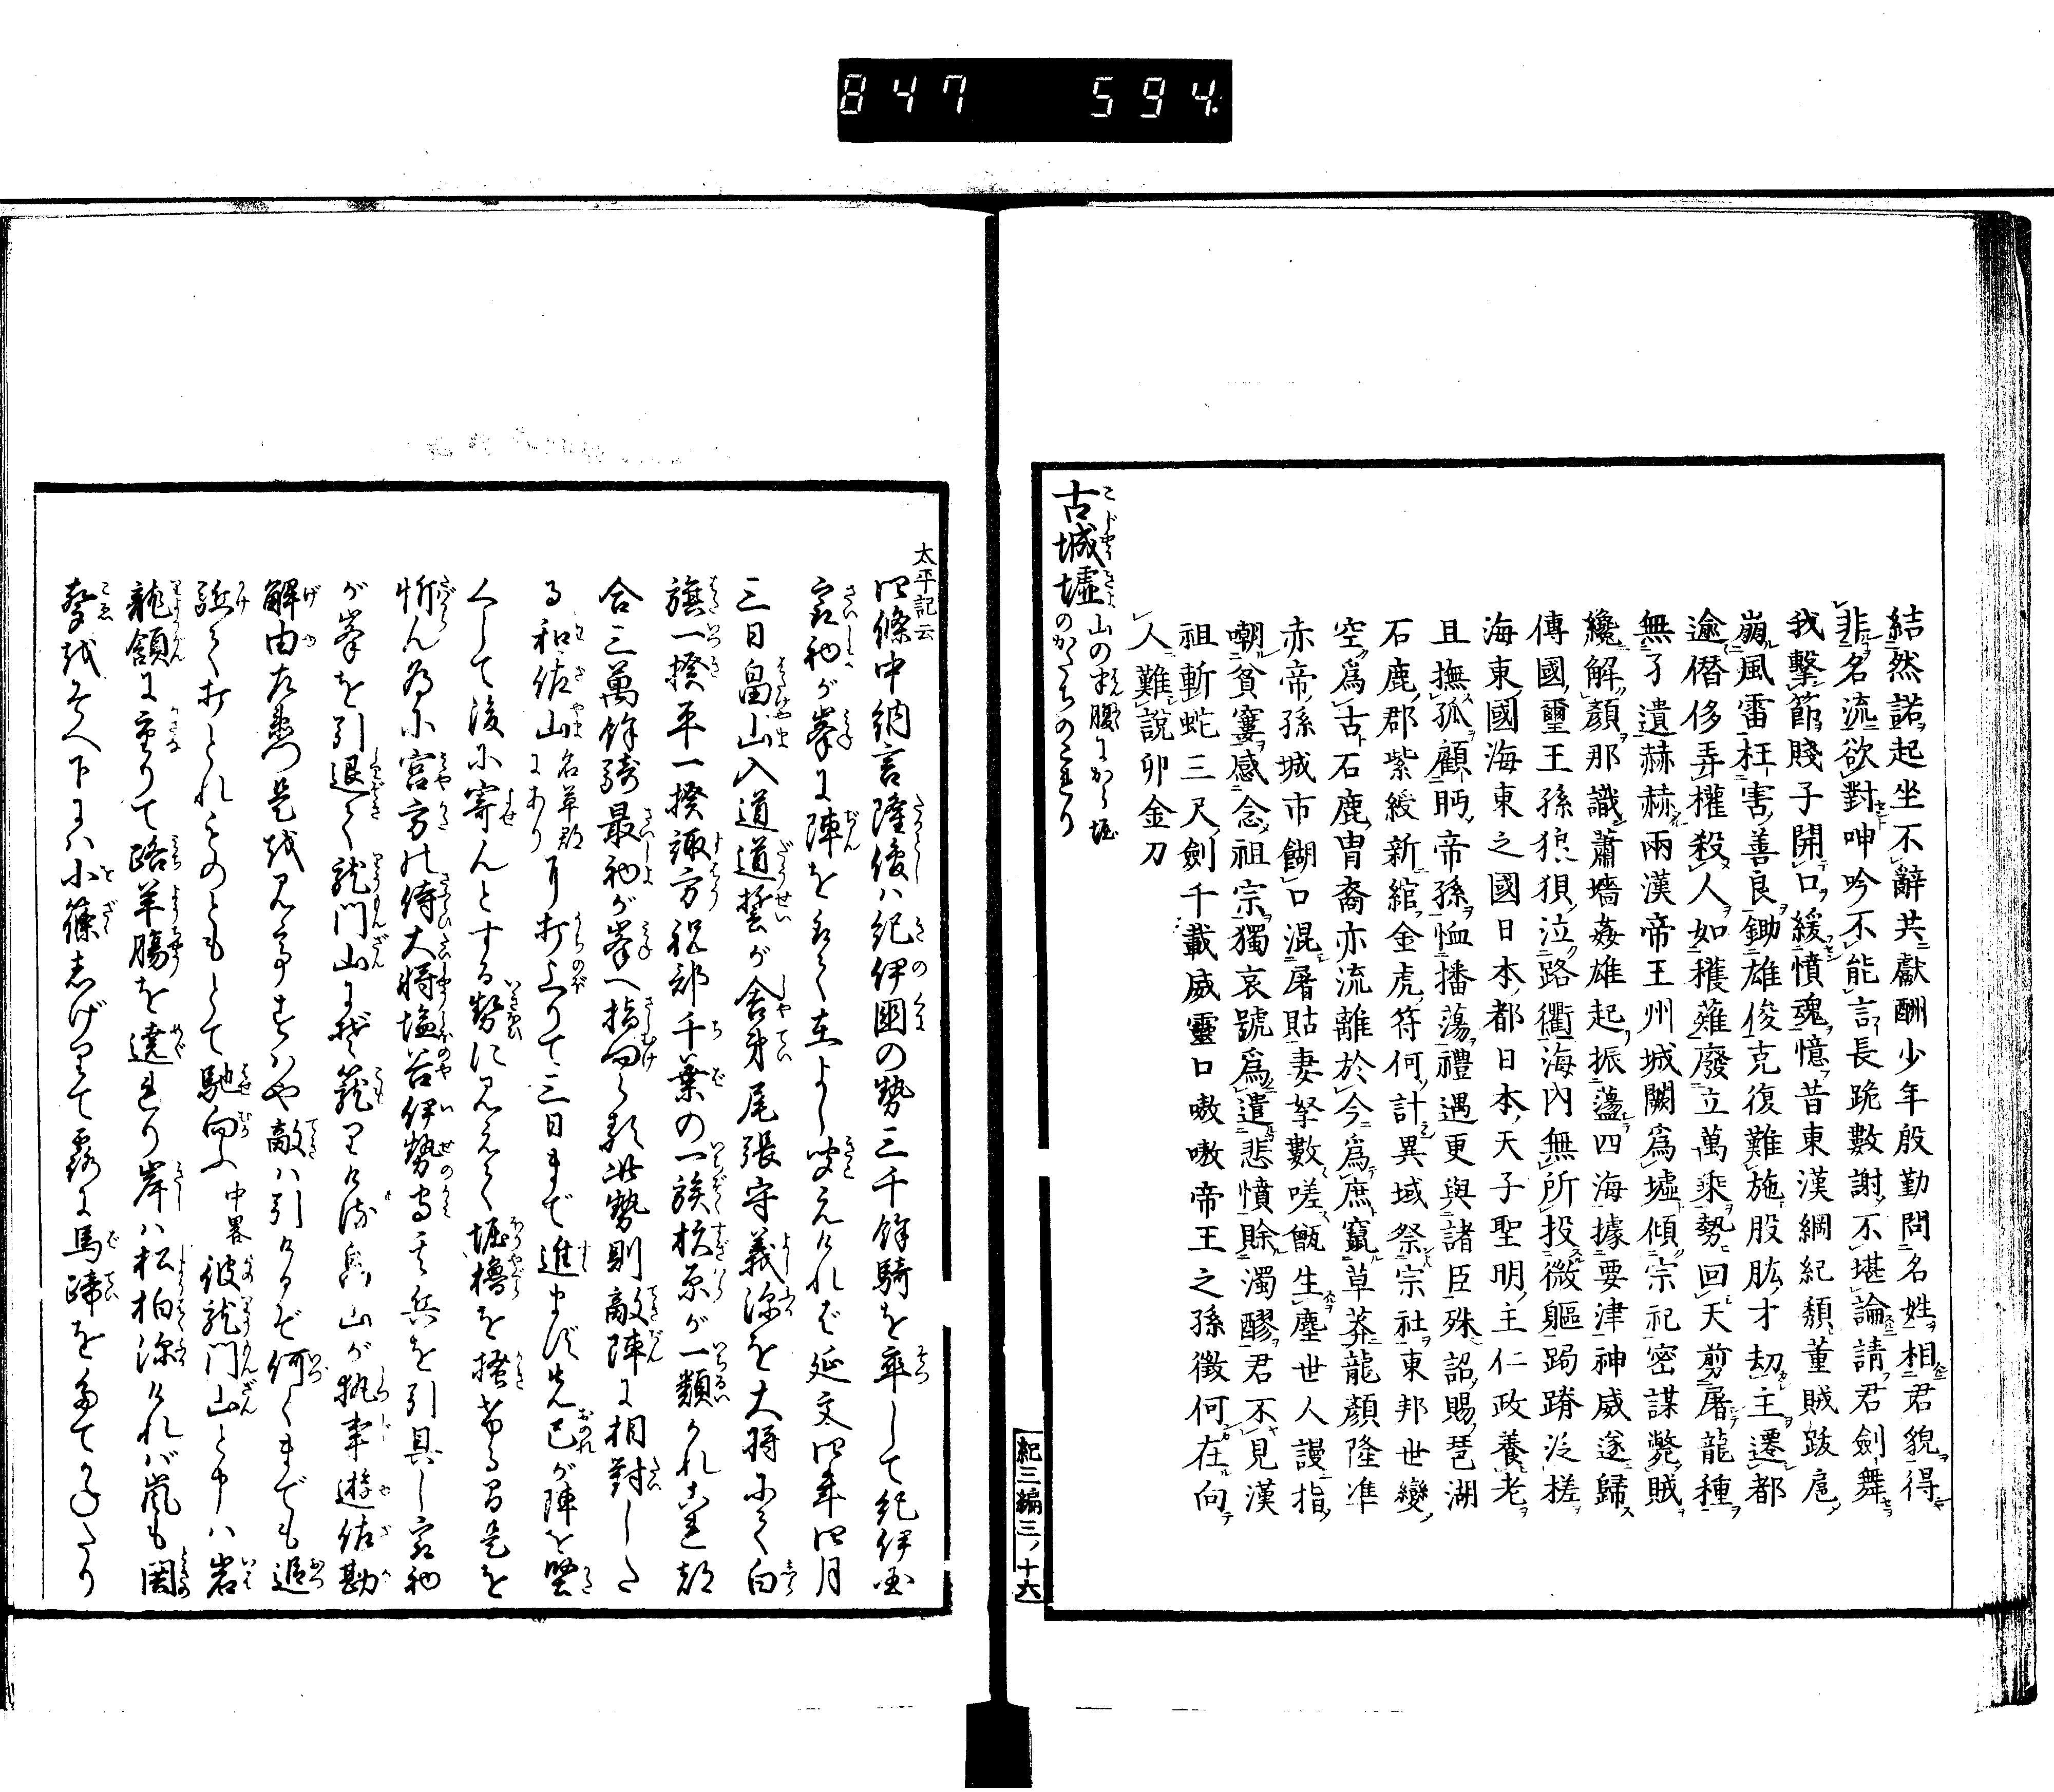 847 594
結然諾起坐不辭共獻酬少年殷勤問名姓相君貌得
非名流欲對呻吟不能言長跪數謝不堪論請君劍舞
我擊節賤子開口緩憤魂憶昔東漢綱紀頽董賊跋扈
崩風雷枉害善良鋤雄俊克復難施股肱才劫主遷都
逾僭侈弄權殺人如穫薙廢立萬乘勢回天剪屠龍種
無孑遺赫赫兩漢帝王州城闕爲墟傾宗祀密謀斃賊
纔解顏那識蕭墻姦雄起振蘯四海據要津神威遂歸
傳國璽王孫狼狽泣路衢海內無所投微軀跼蹐泛槎
海東國海東之國日本都日本天子聖明主仁政養老
且撫孤顧眄帝孫恤播蕩禮遇更與諸臣殊詔賜琶湖
石鹿郡紫綬新綰金虎符何計異域祭宗社東邦世變
空爲古石鹿冑裔亦流離於今爲庶竄草莽龍顏隆準
赤帝孫城市餬口混屠沽妻孥數嗟甑生塵世人謾指
嘲貧窶感念祖宗獨哀號爲遣悲憤賒濁醪君不見漢
祖斬蛇三尺劍千載威靈口嗷嗷帝王之孫徵何在向
人難說卯金刀
古城墟 山の半腹にかゝ堀のかたちのこれり
紀三編三ノ十六
太平記云
四條中納言隆俊ハ紀伊國の勢三千餘騎を率して紀伊國
最初が峯に陣を取て在よし聞えけれバ延文四年四月
三日畠山入道道誓が舍弟尾張守義深を大將にて白
旗一揆平一揆諏方祝部千葉の一族杉原が一類かれこれ都
合三萬餘騎最初が峯へ指向らる此勢則敵陣に相對した
る和佐山名草郡にあり に打上りて三日まで進まず先己が陣を堅
くして後に寄んとする勢に見えて堀櫓を搔ける間是を
忻ん爲に宮方の侍大將塩谷伊勢守其兵を引具し最初
が峯を引退て龍門山にぞ籠りける畠山が執事遊佐勘
解由左衞門是を見てすハや敵ハ引けるぞ何くまでも追
詰て打とれものどもとて馳向ふ 中畧 彼龍門山と申ハ岩
龍頷に重りて路羊膓を遶れり岸ハ松柏深けれバ嵐も鬨
聲をそへ下にハ小篠しげりて露に馬蹄を立てかねたり